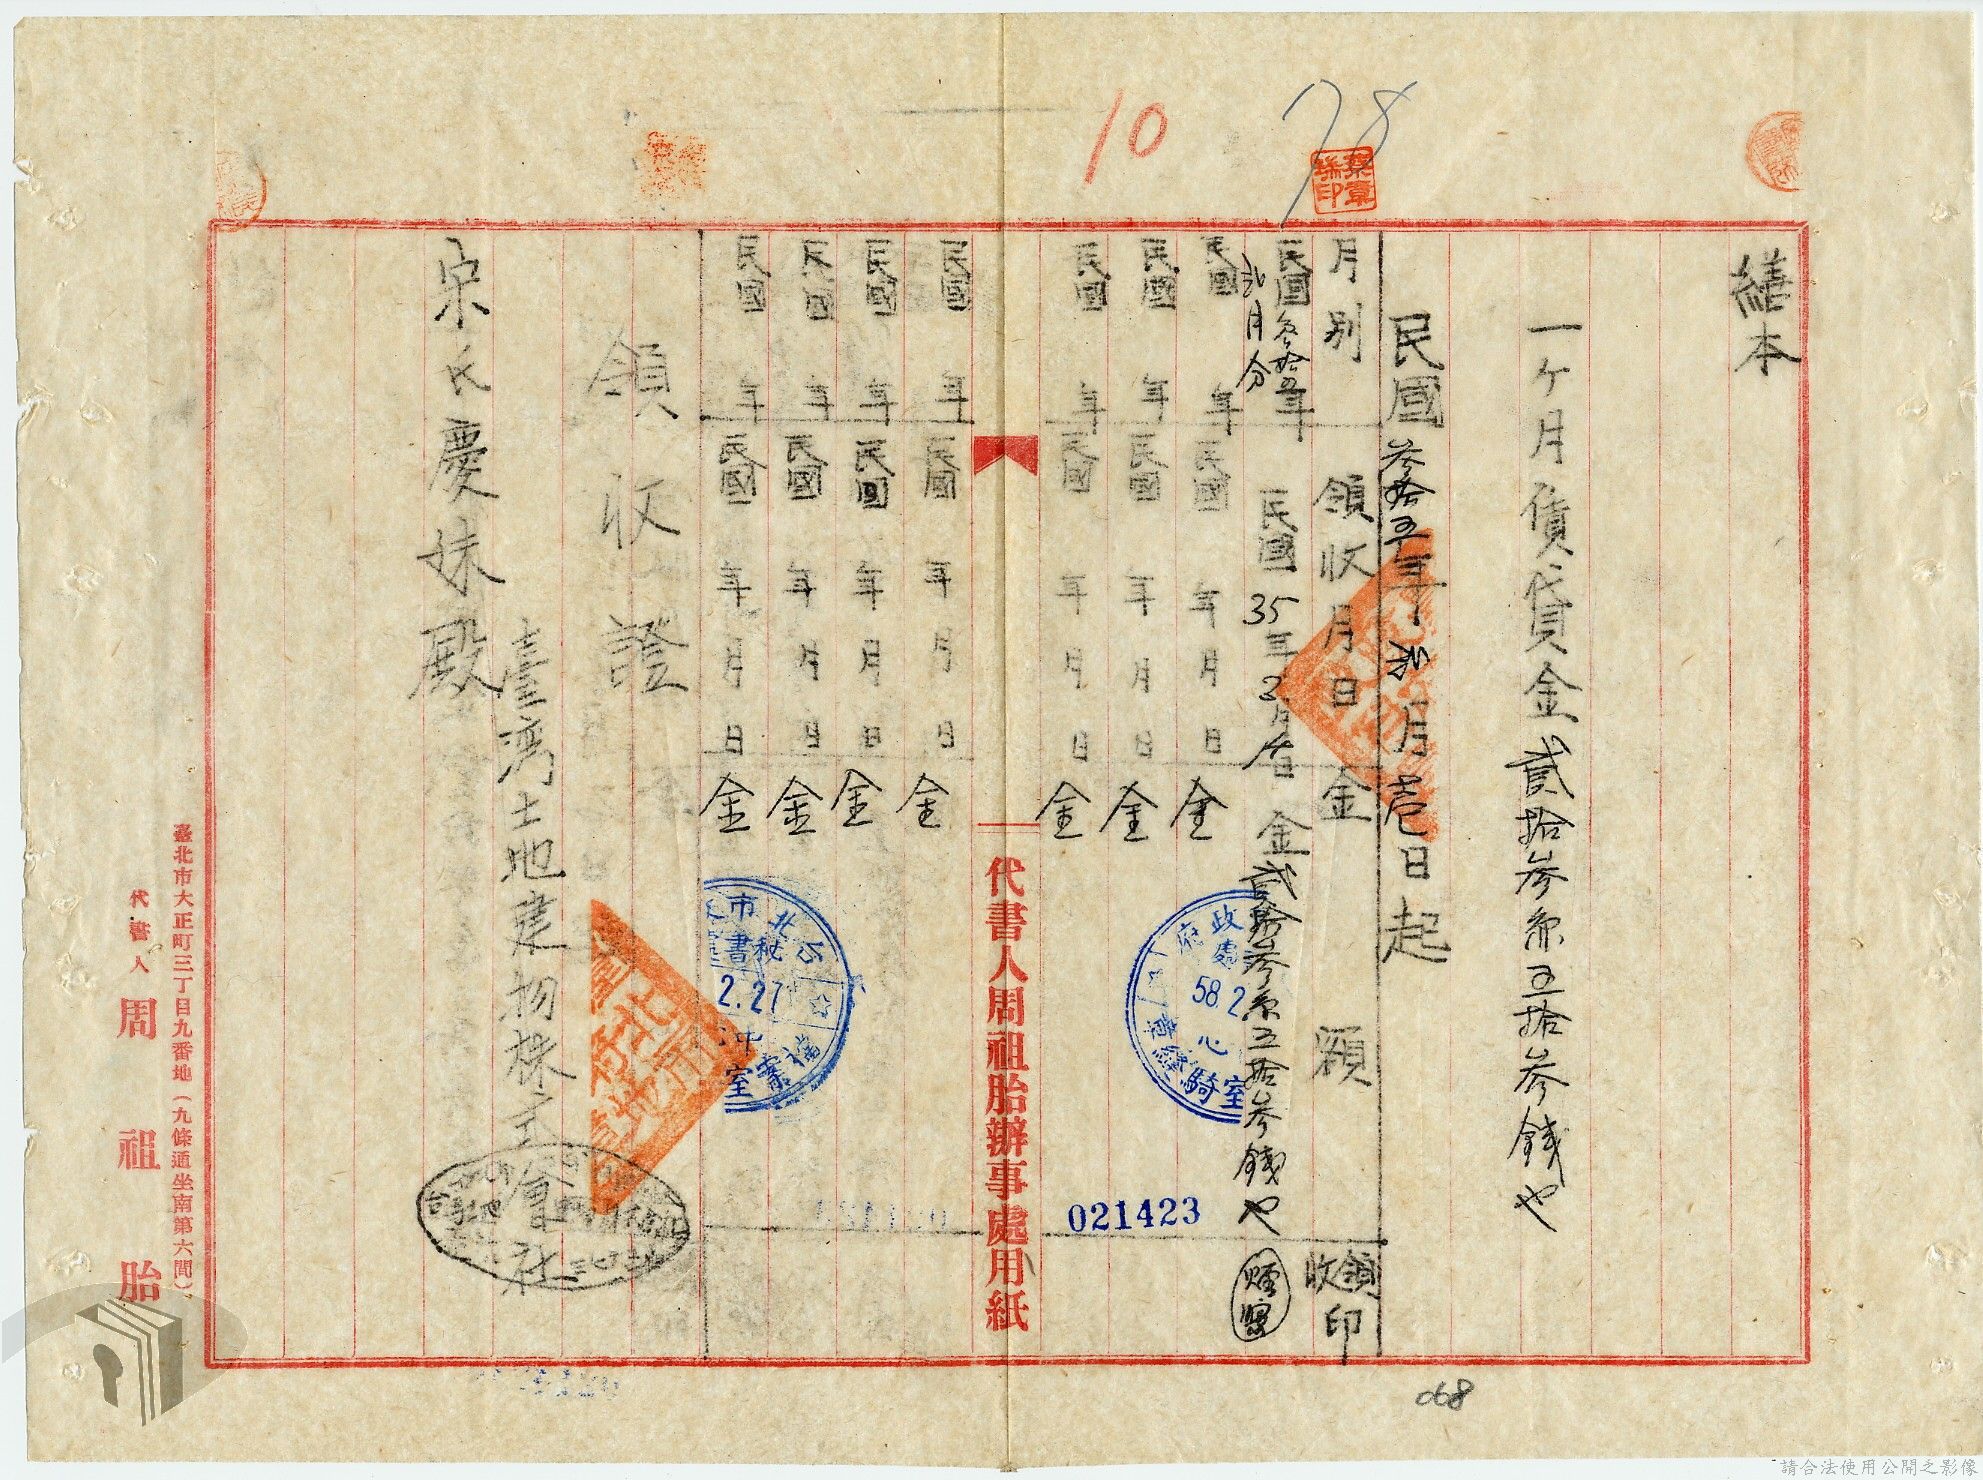 繕本
一ケ月賃貸金貳拾參糸五拾參錢也
民國參拾五年貳月壱日起
月別 領收月日 金額 領收印
民國參拾五年貳月分 民國35年2月 日 金貳拾參糸五拾參錢也
民國 年 民國 年 月 日 金
民國 年 民國 年 月 日 金
民國 年 民國 年 月 日 金
代書人周祖胎辦事處用紙
民國 年 民國 年 月 日 金
民國 年 民國 年 月 日 金
民國 年 民國 年 月 日 金
民國 年 民國 年 月 日 金
領收證
臺灣土地建物株式會社
宋氏慶妹殿
臺北市大正町三丁目九番地（九條通坐南第六間）
代書人 周祖胎
10
78
蔡章瑞印
021423
府政
處
58.2
心
騎縫章
室
台北市
秘書
2.27
中
檔案室
068
請合法使用公開之影像